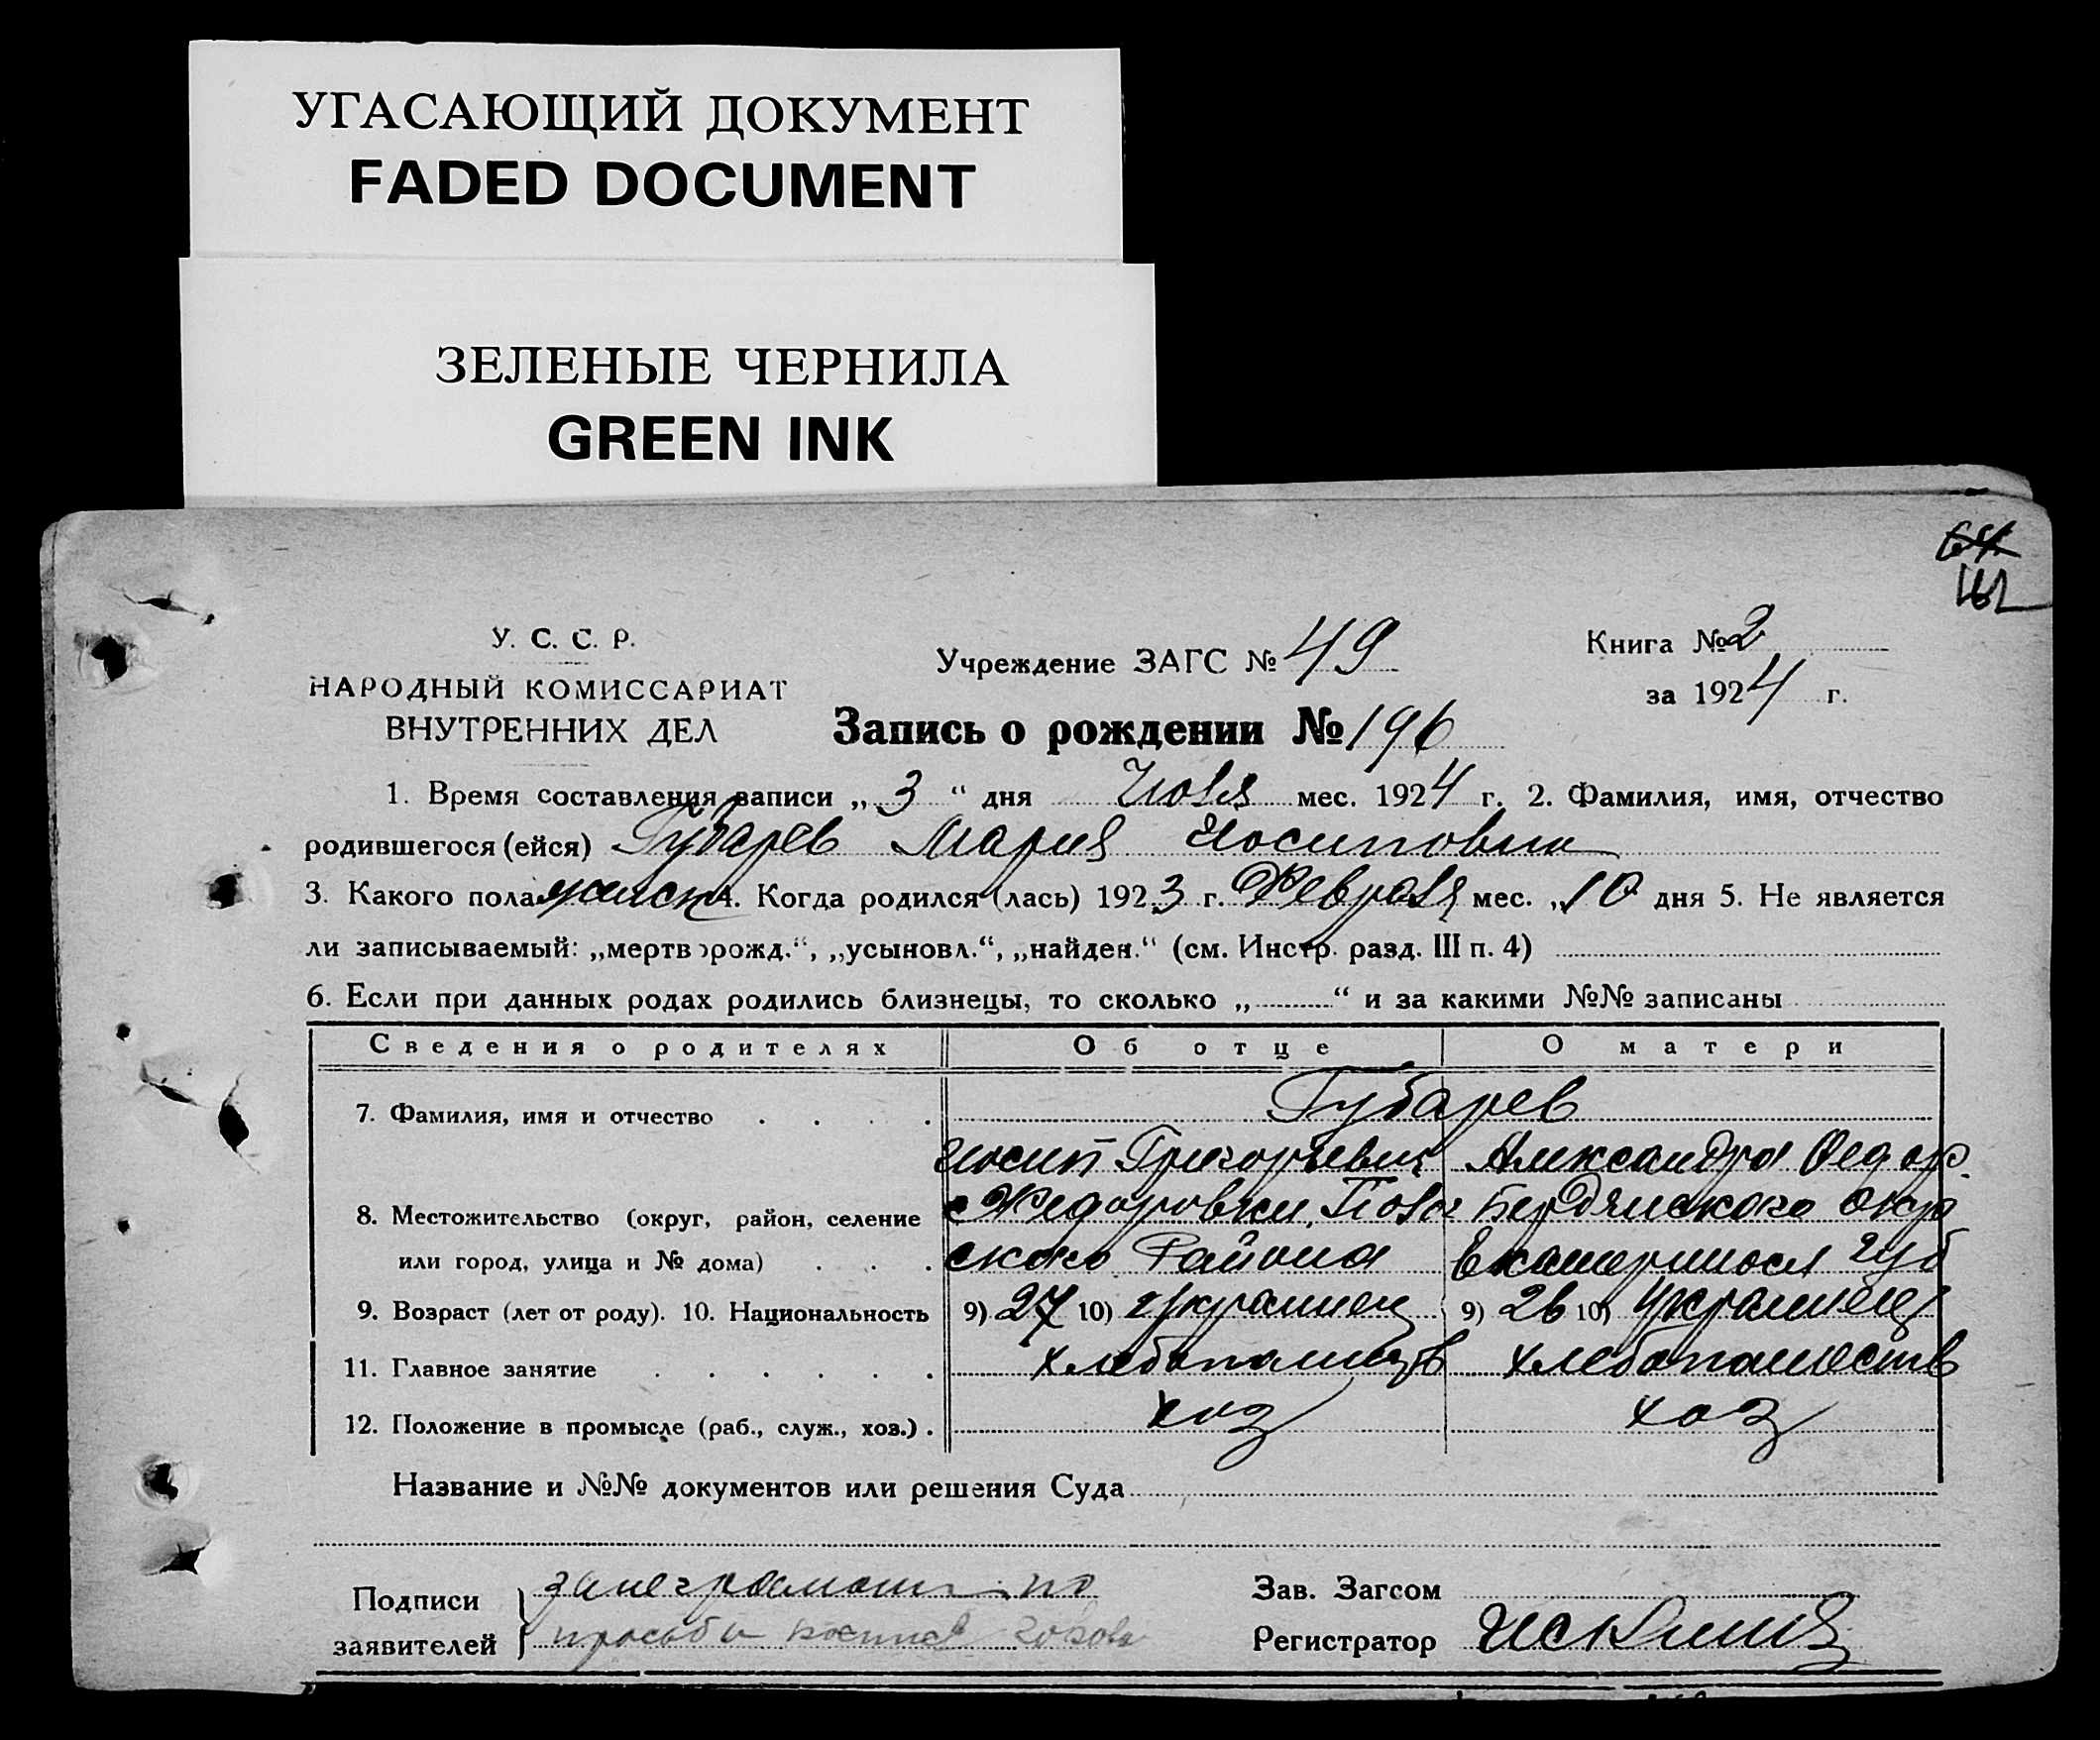 УГАСАЮЩИЙ ДОКУМЕНТ
FADED DOCUMENT
ЗЕЛЕНЫЕ ЧЕРНИЛА
GREEN INK
64
162
У. С. С. Р.
НАРОДНЫЙ КОМИССАРИАТ
ВНУТРЕННИХ ДЕЛ
Учреждение ЗАГС № 49
Книга № 2
за 1924 г.
Запись о рождении № 196
1. Время составления записи „ 3 “ дня Июля мес. 1924 г. 2. Фамилия, имя, отчество
родившегося (ейся) Губарев Мария Иосиповна
3. Какого пола женск 4. Когда родился (лась) 1923 г. Февраля мес. „10 дня 5. Не является
ли записываемый: „мертворожд.“, „усыновл.“, „найден.“ (см. Инстр. разд. III п. 4)
6. Если при данных родах родились близнецы, то сколько „ “ и за какими №№ записаны
Сведения о родителях Об отце О матери
7. Фамилия, имя и отчество Губарев
Иосип Григорьевич Александра Федор.
8. Местожительство (округ, район, селение с Федоровки, Бердянского окр
или город, улица и № дома) ского Района Екатериносл губ
9. Возраст (лет от роду). 10. Национальность 9) 27 10) Украинец 9) 26 10) Украинец
11. Главное занятие хлебопашеств хлебопашеств
12. Положение в промысле (раб., служ., хоз.) хоз хоз
Название и №№ документов или решения Суда
Подписи занеграмотн по
заявителей просьби
Зав. Загсом
Регистратор